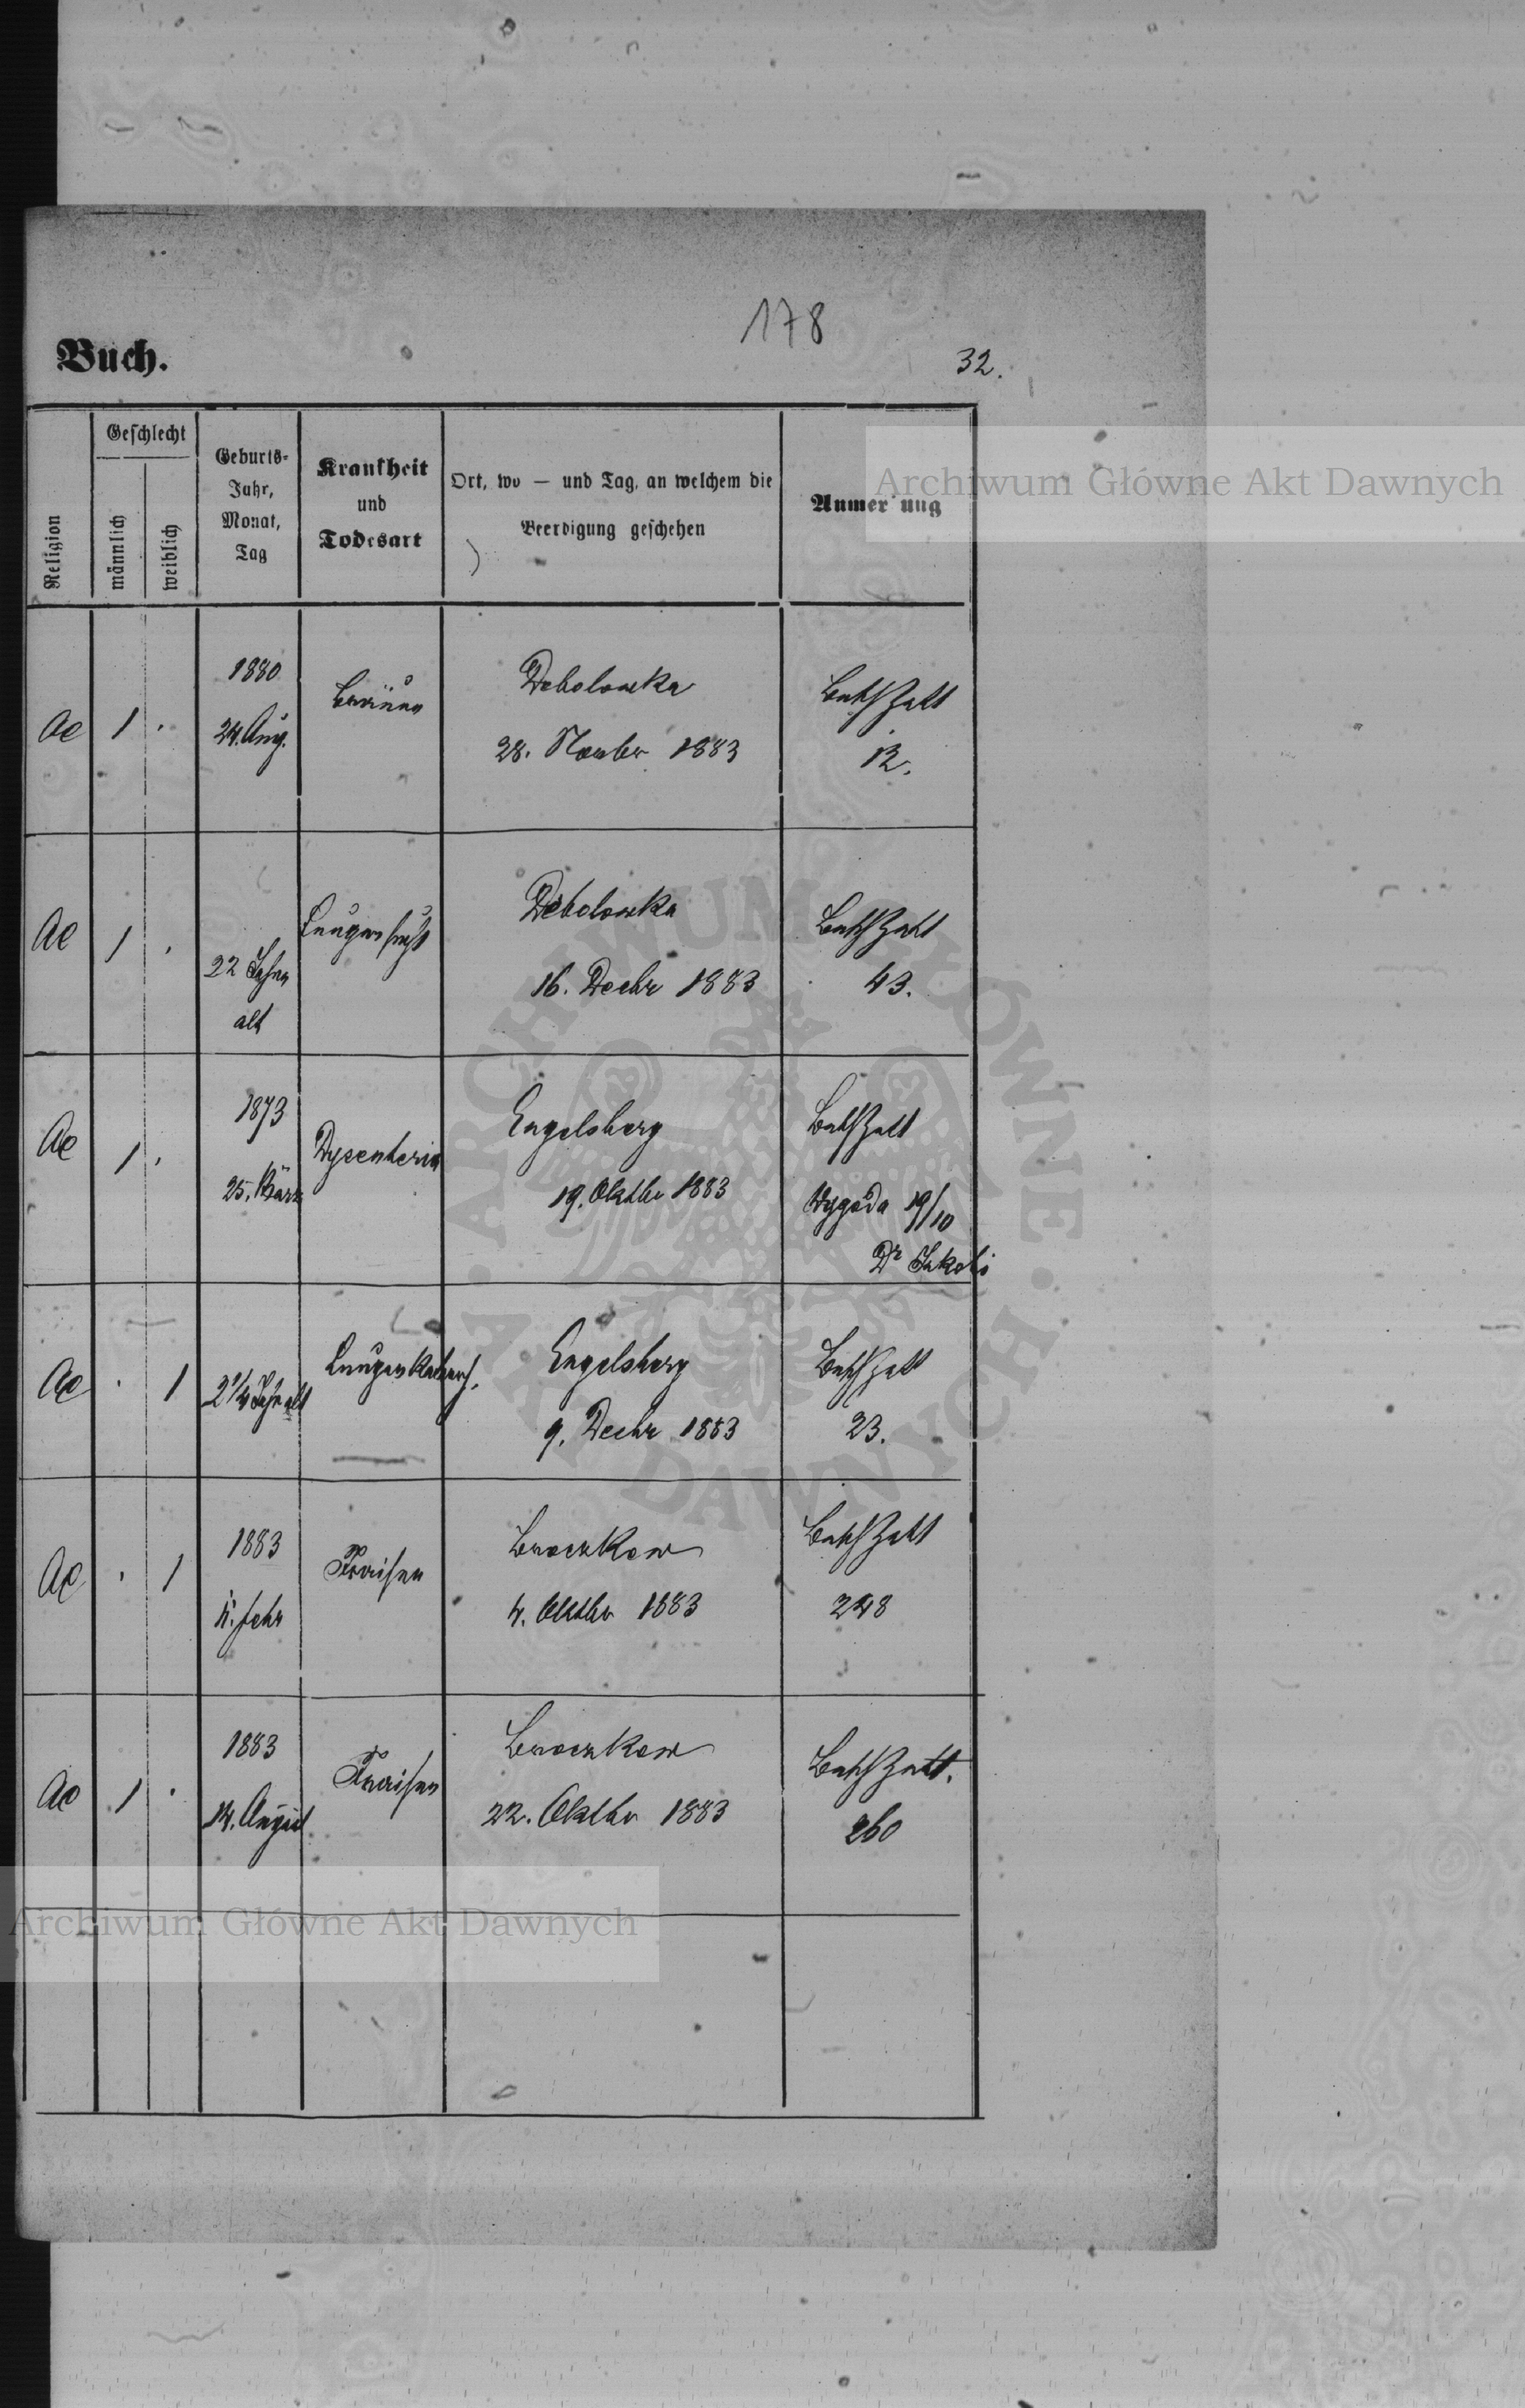 178
Buch.
32.
Religion
Geschlecht
männlich
weiblich
Geburts-
Jahr,
Monat,
Tag
Krankheit
und
Todesart
Ort, wo — und Tag, an welchem die
Beerdigung geschehen
Anmer ung
Archiwum Główne Akt Dawnych
ae 1 .
1880
24. Aug.
Bräune
Debolowka
28. Novbr 1883
12.
ae 1 .
22 Jahre
alt
Lungensucht
Debolowka
16. Decbr 1883
43.
ae 1 .
1873
25. März
Dysenteria
Engelsberg
19. Oktbr 1883
Wygoda 19/10
Dr
ae . 1
2 1/4 Jahr alt
Lungenkatarrh.
Engelsberg
9. Decbr 1883
23.
ae . 1
1883
Febr
Fraisen
Broczkow
4. Oktbr 1883
248
ae 1 .
1883
14. August
Fraisen
Broczkow
22. Oktbr 1883
260
Archiwum Główne Akt Dawnych
ARCHIWUM GŁÓWNE AKT DAWNYCH